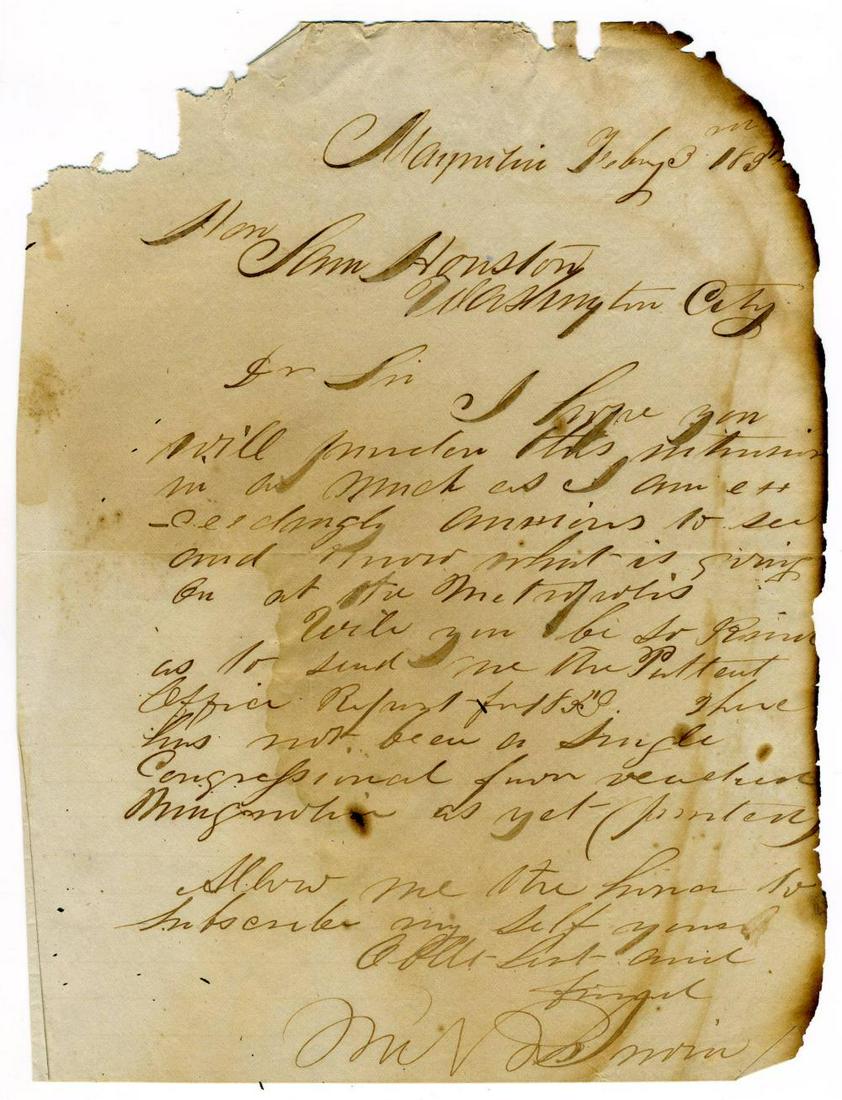 Magnolia Feby 3rd 185
Hon
Sam Houston
Washington City
Dr Sir
I hope you
will pardon this intrusion
in as much as I am ex
-ceedingly anxious to see
and know what is going
on at the Metropolis
Will you be so kind
as to send me the Pattent
Office Report for 185 There
has not been a single
Congressional favor reached
Magnolia as yet (printed)
Allow me the honor to
subscribe my self your
Obt Sert and
friend